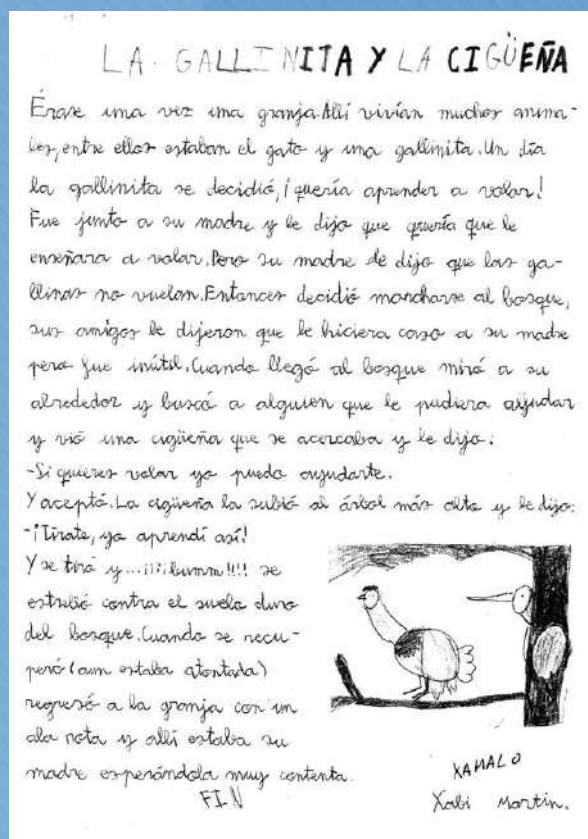 LA GALLINITA Y LA CIGÜEÑA
Érase una vez una granja. Allí vivían muchos anima-
les, entre ellos estaban el gato y una gallinita. Un día
la gallinita se decidió, ¡quería aprender a volar!
Fue junto a su madre y le dijo que quería que le
enseñara a volar. Pero su madre le dijo que las ga-
llinas no vuelan. Entonces decidió marcharse al bosque,
sus amigos le dijeron que le hiciera caso a su madre
pero fue inútil. Cuando llegó al bosque miró a su
alrededor y buscó a alguien que le pudiera ayudar
y vió una cigüeña que se acercaba y le dijo:
-Si quieres volar yo puedo ayudarte.
Y aceptó. La cigüeña la subió al árbol más alto y le dijo:
-¡Tírate, yo aprendí así!
Y se tiró y...¡¡¡¡bumm!!!! se
estrelló contra el suelo duro
del bosque. Cuando se recu-
peró (aun estaba atontada)
regresó a la granja con un
ala rota y allí estaba su
madre esperándola muy contenta.
FIN
XAMALO
Xabi Martin.